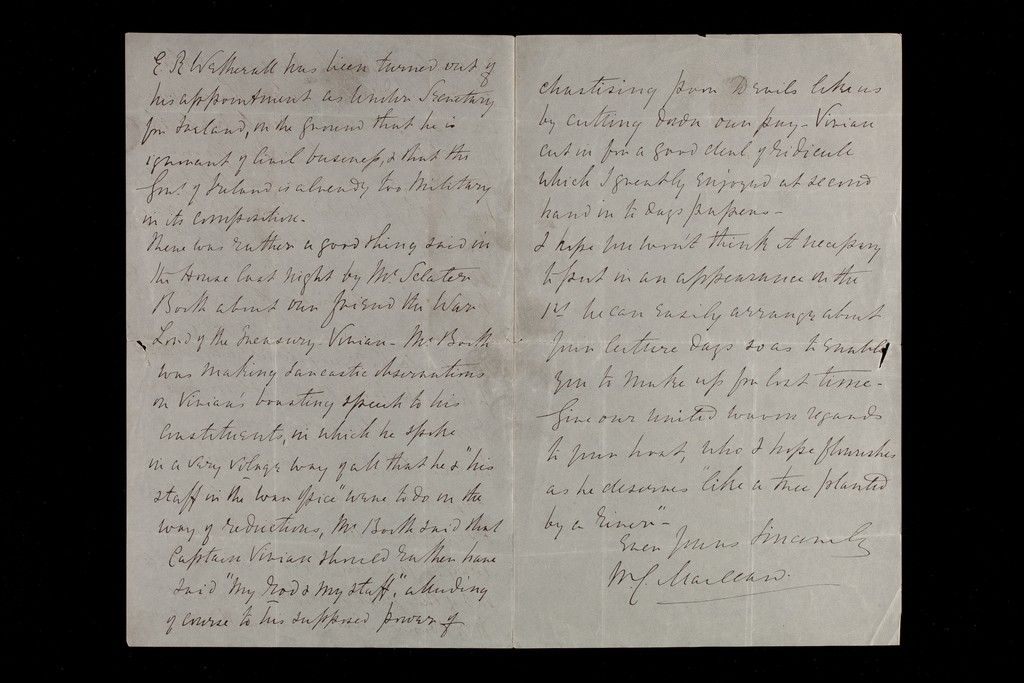 E R Wetherall has been turned out of
his appointment as Under Secretary
for Ireland, on the ground that he is
ignorant of Civil business, & that the
Govt. of Ireland is already too Military
in its composition.
There was rather a good thing said in
the House last night by Mr. Sclater
Booth about our friend the War
Lord of the Treasury - Vivian - Mr Booth
was making sarcastic observations
on Vivian's boasting speech to his
Constituents, in which he spoke
in a very vulgar way of all that he & "his
staff in the War Office" were to do in the
way of reductions, Mr Booth said that
Captain Vivian should rather have
said "My rod & my staff", alluding
of course to his supposed power of
chastising poor Devils like us
by cutting down our pay - Vivian
cut in for a good deal of ridicule
which I greatly enjoyed at second
hand in to days papers -
I hope you won't think it necessary
to put in an appearance on the
1st. he can easily arrange about
your lecture days so as to enable
you to make up for lost time -
Give our united warm regards
to your host, who I hope flourishes
as he deserves "like a tree planted
by a River" -
Ever Yours Sincerely